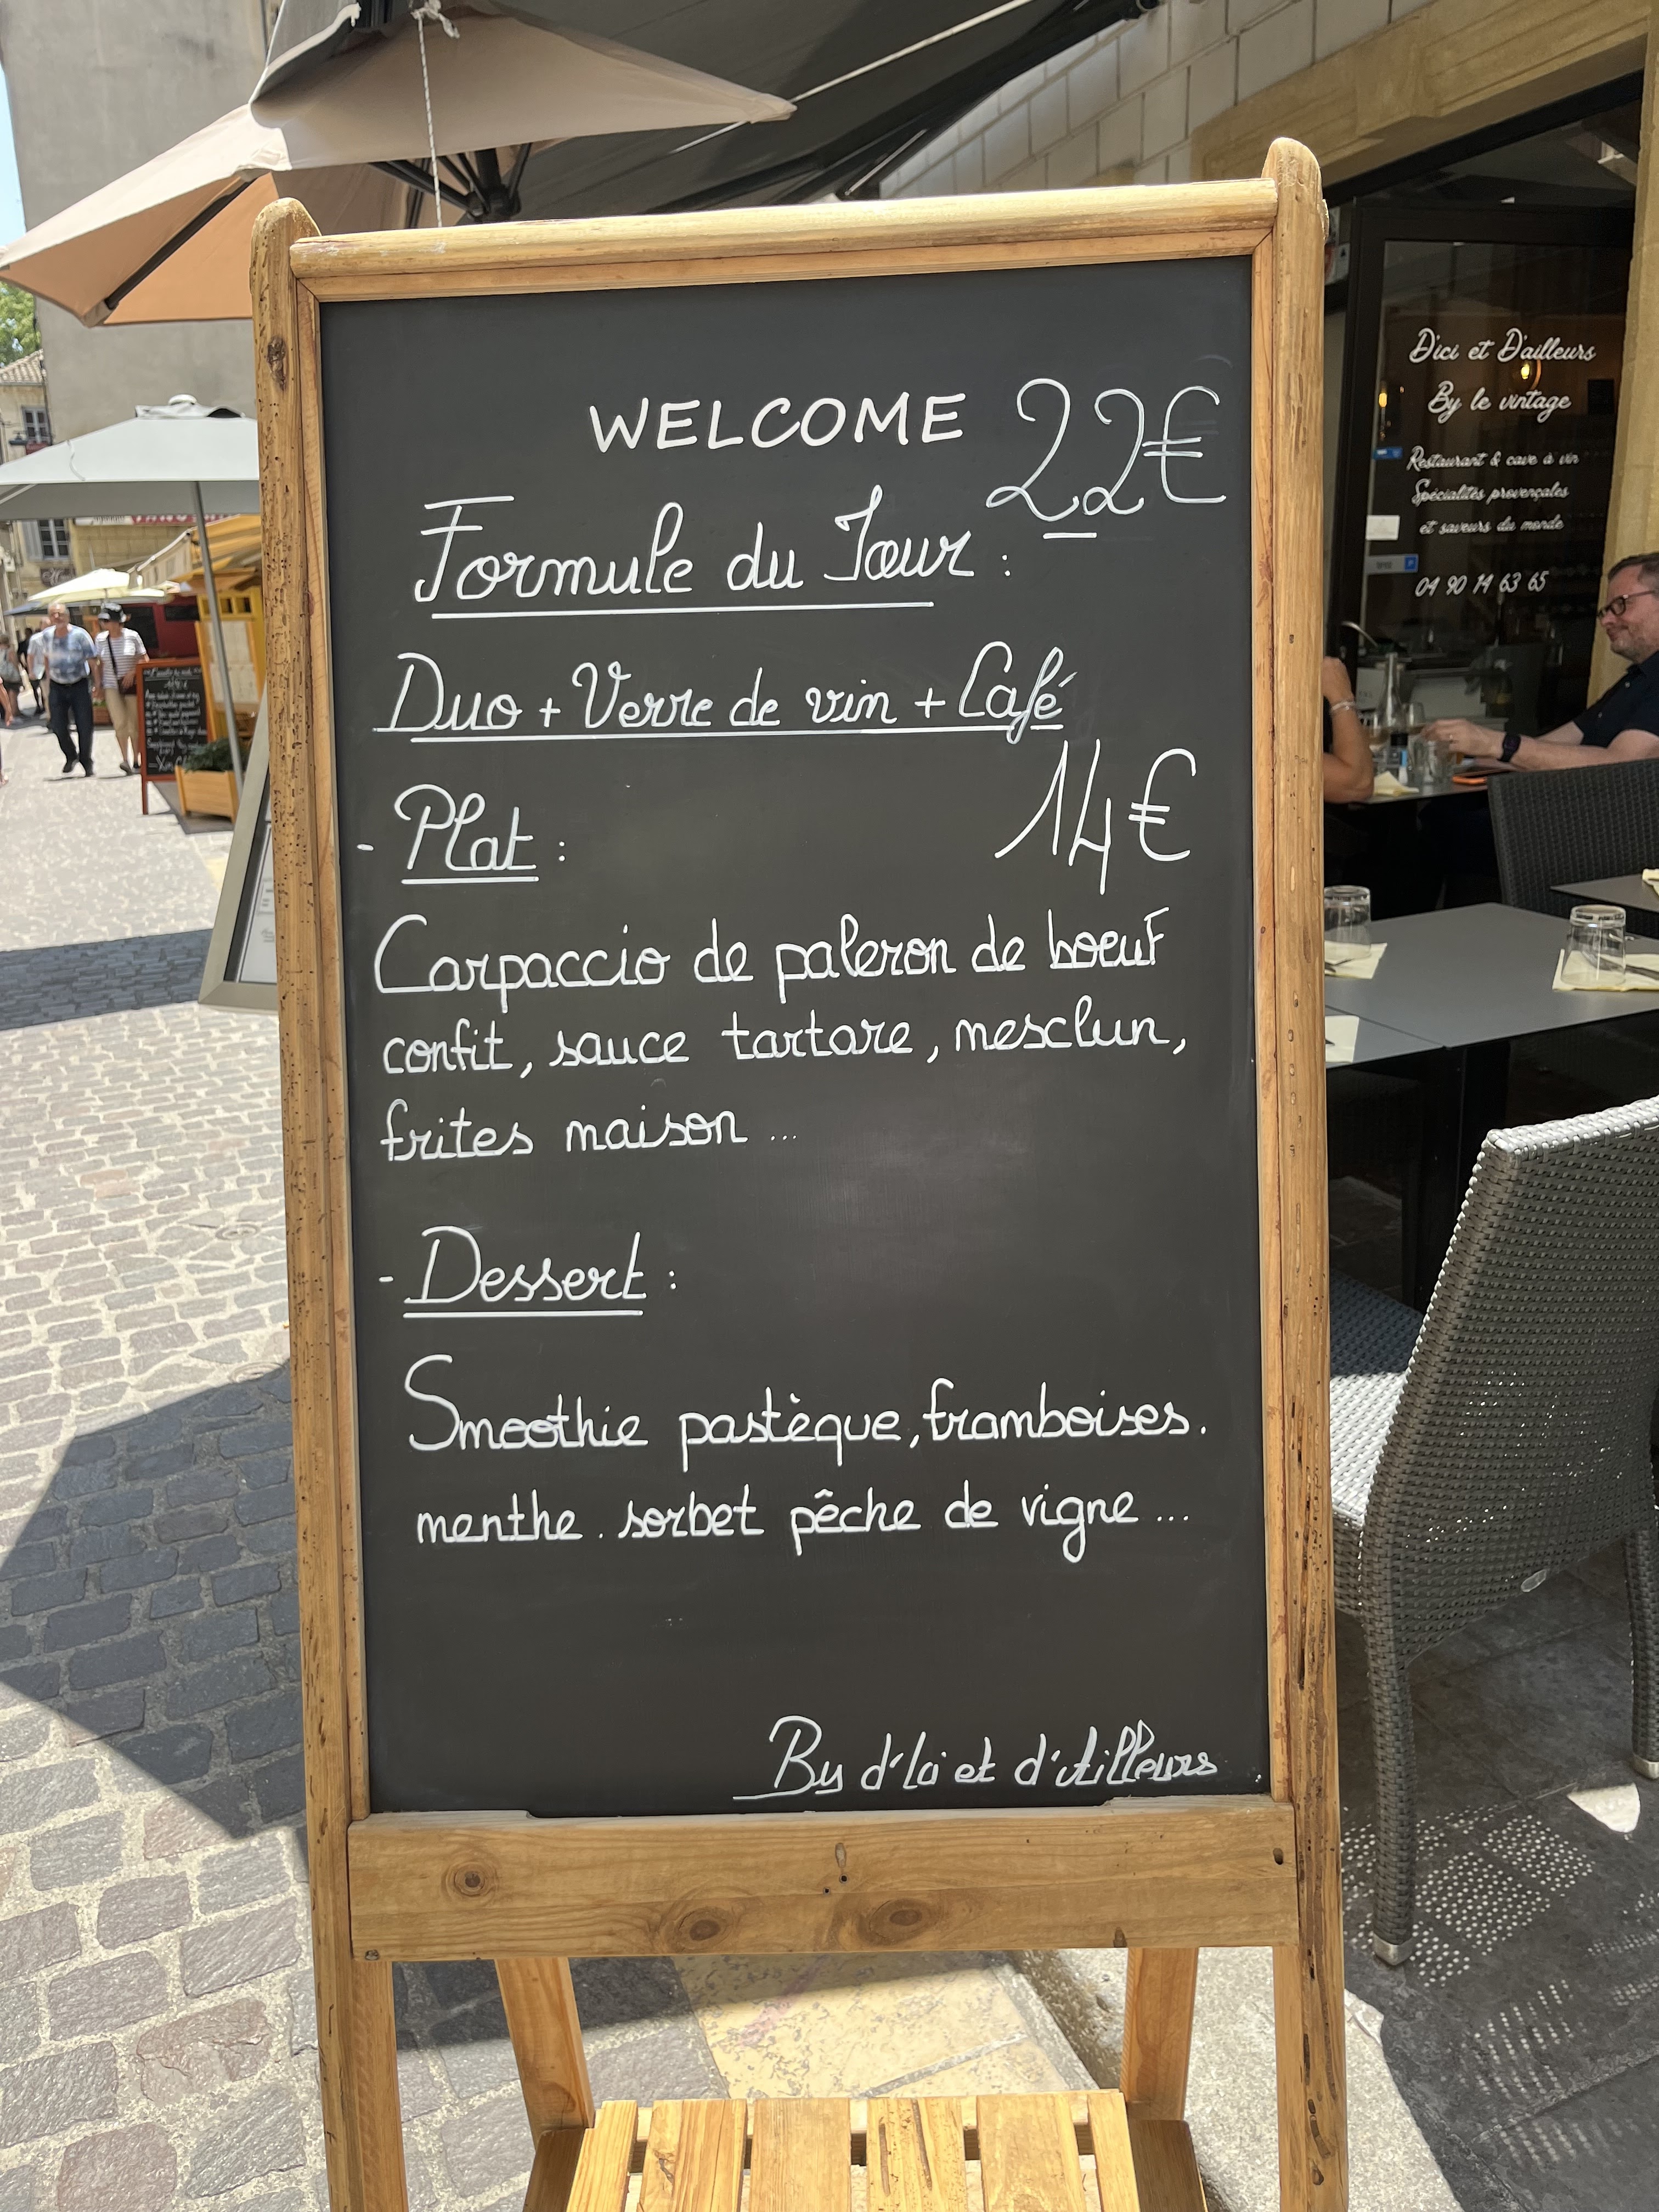 WELCOME 22€
Formule du Jour :
Duo + Verre de vin + Café
- Plat : 14€
Carpaccio de paleron de boeuf
confit, sauce tartare, mesclun,
frites maison ...
- Dessert :
Smoothie pastèque, framboises.
menthe. sorbet pêche de vigne ...
By d'Ici et d'Ailleurs
D'ici et D'ailleurs
By le vintage
Restaurant & cave à vin
Spécialités provençales
et saveurs du monde
04 90 14 63 65